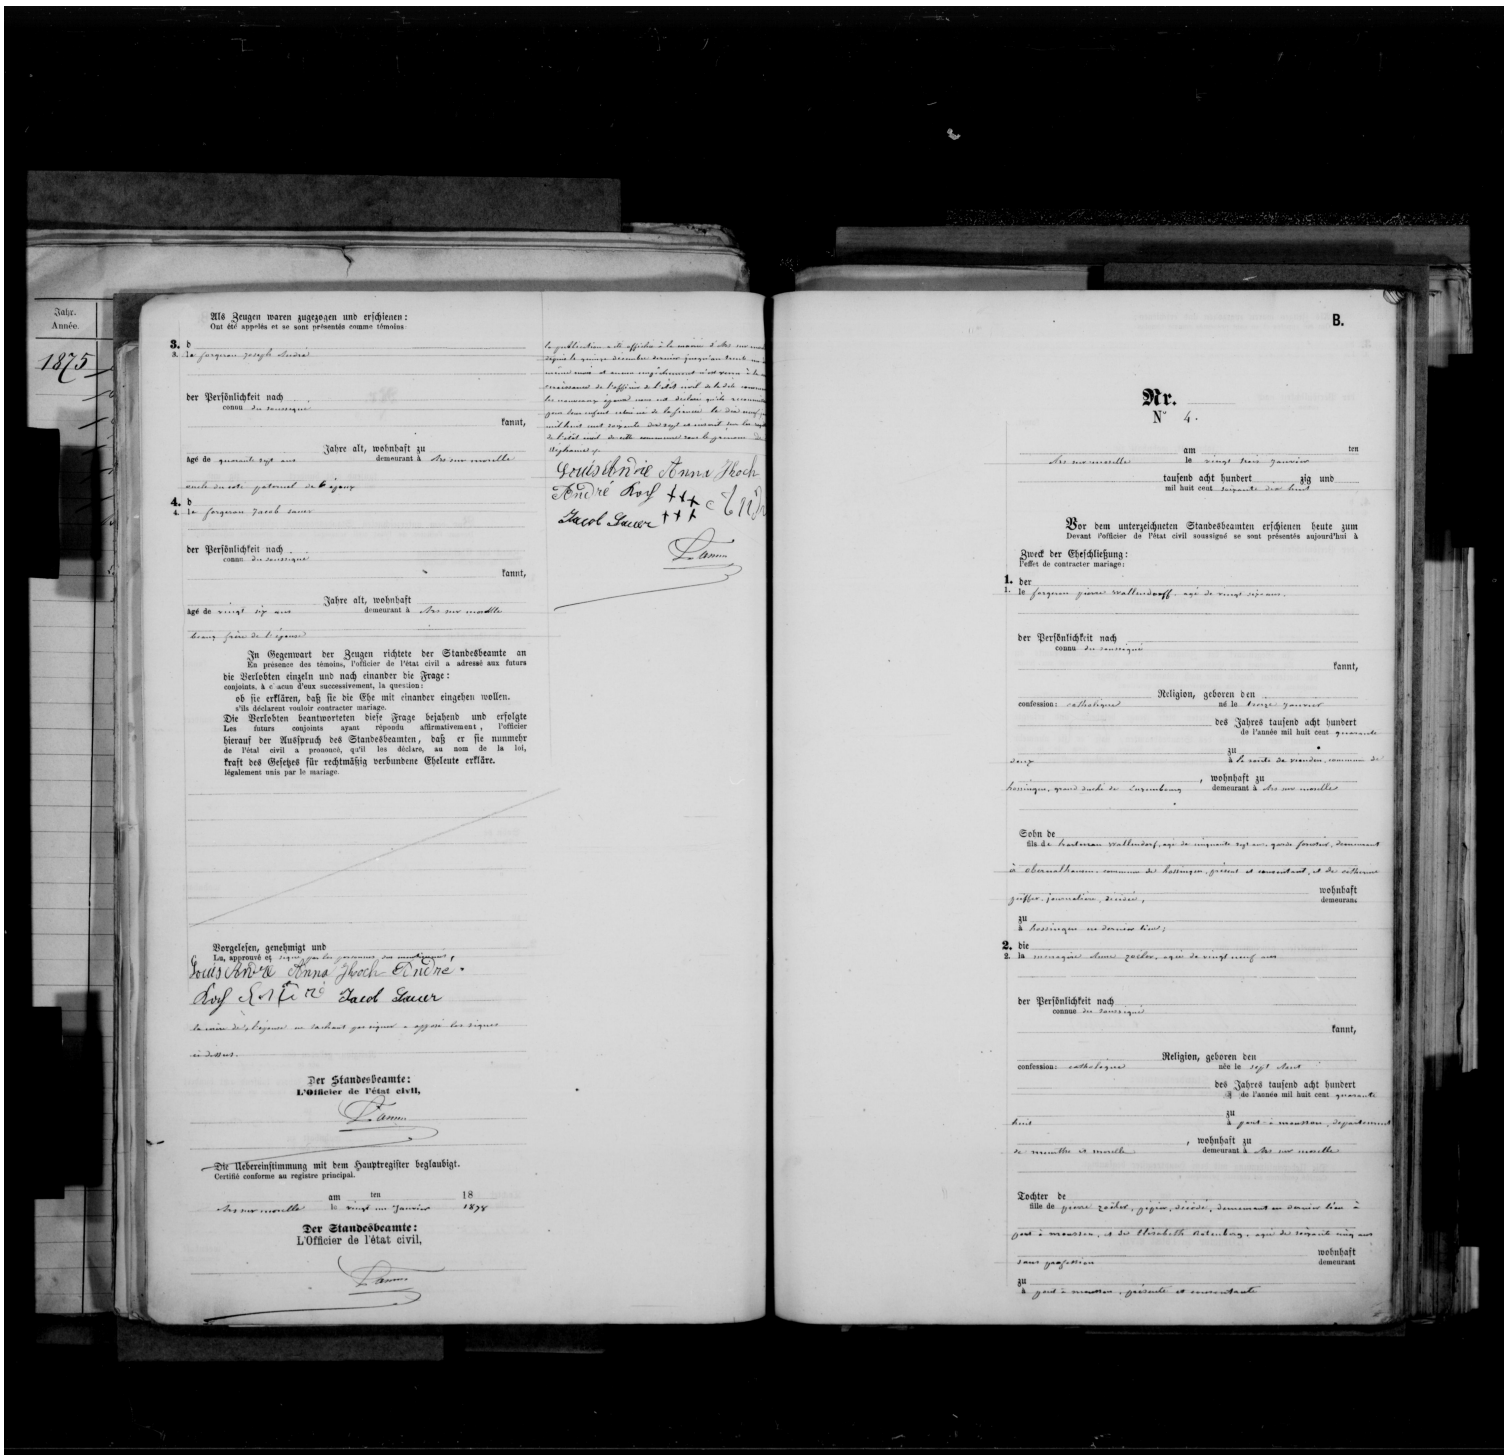 Jahr.
Année.
1875
Als Zeugen waren zugezogen und erschienen:
Ont été appelés et se sont présentés comme témoins:
3. d
3. le forgeron Joseph André
der Persönlichkeit nach
connu du soussigné
kannt,
Jahre alt, wohnhaft zu
âgé de quarante sept ans demeurant à Ars sur moselle
oncle du coté paternel de l'époux
4. d
4. le forgeron Jacob Sauer
der Persönlichkeit nach
connu du soussigné
kannt,
Jahre alt, wohnhaft
âgé de vingt six ans demeurant à Ars sur moselle
beau frère de l'épouse
In Gegenwart der Zeugen richtete der Standesbeamte an
En présence des témoins, l'officier de l'état civil a adressé aux futurs
die Verlobten einzeln und nach einander die Frage:
conjoints, à c acun d'eux successivement, la question:
ob sie erklären, daß sie die Ehe mit einander eingehen wollen.
s'ils déclarent vouloir contracter mariage.
Die Verlobten beantworteten diese Frage bejahend und erfolgte
Les futurs conjoints ayant répondu affirmativement, l'officier
hierauf der Ausspruch des Standesbeamten, daß er sie nunmehr
de l'état civil a prononcé, qu'il les déclare, au nom de la loi,
kraft des Gesetzes für rechtmäßig verbundene Eheleute erkläre.
légalement unis par le mariage.
Vorgelesen, genehmigt und
Lu, approuvé et signé par les personnes sus mentionnées,
Louis André Anna Koch André
Koch André Jacob Sauer
la mère de l'épouse ne sachant pas signer a apposé les signes
ci dessus.
Der Standesbeamte:
L'Officier de l'état civil,
Die Uebereinstimmung mit dem Hauptregister beglaubigt.
Certifié conforme au registre principal.
am ten 18
Ars sur moselle le vingt un Janvier 1878
Der Standesbeamte:
L'Officier de l'état civil,
la publication a été affichée à la mairie d'Ars sur
depuis le quinze décembre dernier jusqu'au trente
même mois et aucun empêchement n'est venu à la
connaissance de l'officier de l'état civil de la dite commune
les nouveaux époux nous ont déclaré qu'ils reconnaissent
pour leur enfant celui né de la fiancée le dix neuf
mil huit cent soixante dix sept et inscrit sur les
de l'état civil de cette commune sous le prénom de
Stéphanie
Louis André Anna Koch
André Koch +++
Jacob Sauer +++
B.
Nr.
No 4.
am ten
Ars sur moselle le vingt trois Janvier
tausend acht hundert zig und
mil huit cent soixante dix huit
Vor dem unterzeichneten Standesbeamten erschienen heute zum
Devant l'officier de l'état civil soussigné se sont présentés aujourd'hui à
Zweck der Eheschließung:
l'effet de contracter mariage:
1. der
1. le forgeron pierre Wallendorff, agé de vingt
der Persönlichkeit nach
connu du soussigné
kannt,
Religion, geboren den
confession: catholique né le treize Janvier
des Jahres tausend acht hundert
de l'année mil huit cent quarante
zu
deux à la route de vianden, commune de
, wohnhaft zu
hossingen, grand duché de Luxembourg demeurant à Ars sur moselle
Sohn de
fils de Wallendorf, agé de cinquante sept ans, garde forestier, demeurant
à commune de hossingen, présent et consentant, et de catherine
wohnhaft
journalière, décédée, demeurant
zu
à hossingen en dernier lieu;
2. die
2. la ménagère Anne zocher, agée de vingt neuf ans
der Persönlichkeit nach
connue du soussigné
kannt,
Religion, geboren den
confession: catholique née le sept Aout
des Jahres tausend acht hundert
de l'année mil huit cent quarante
zu
huit à pont à mousson, département
, wohnhaft zu
de meurthe et moselle demeurant à Ars sur moselle
Tochter de
fille de pierre zocher, décédé, demeurant en dernier lieu à
pont à mousson, et de Elisabeth agée de soixante cinq ans
wohnhaft
sans profession demeurant
zu
à pont à mousson, présente et consentante